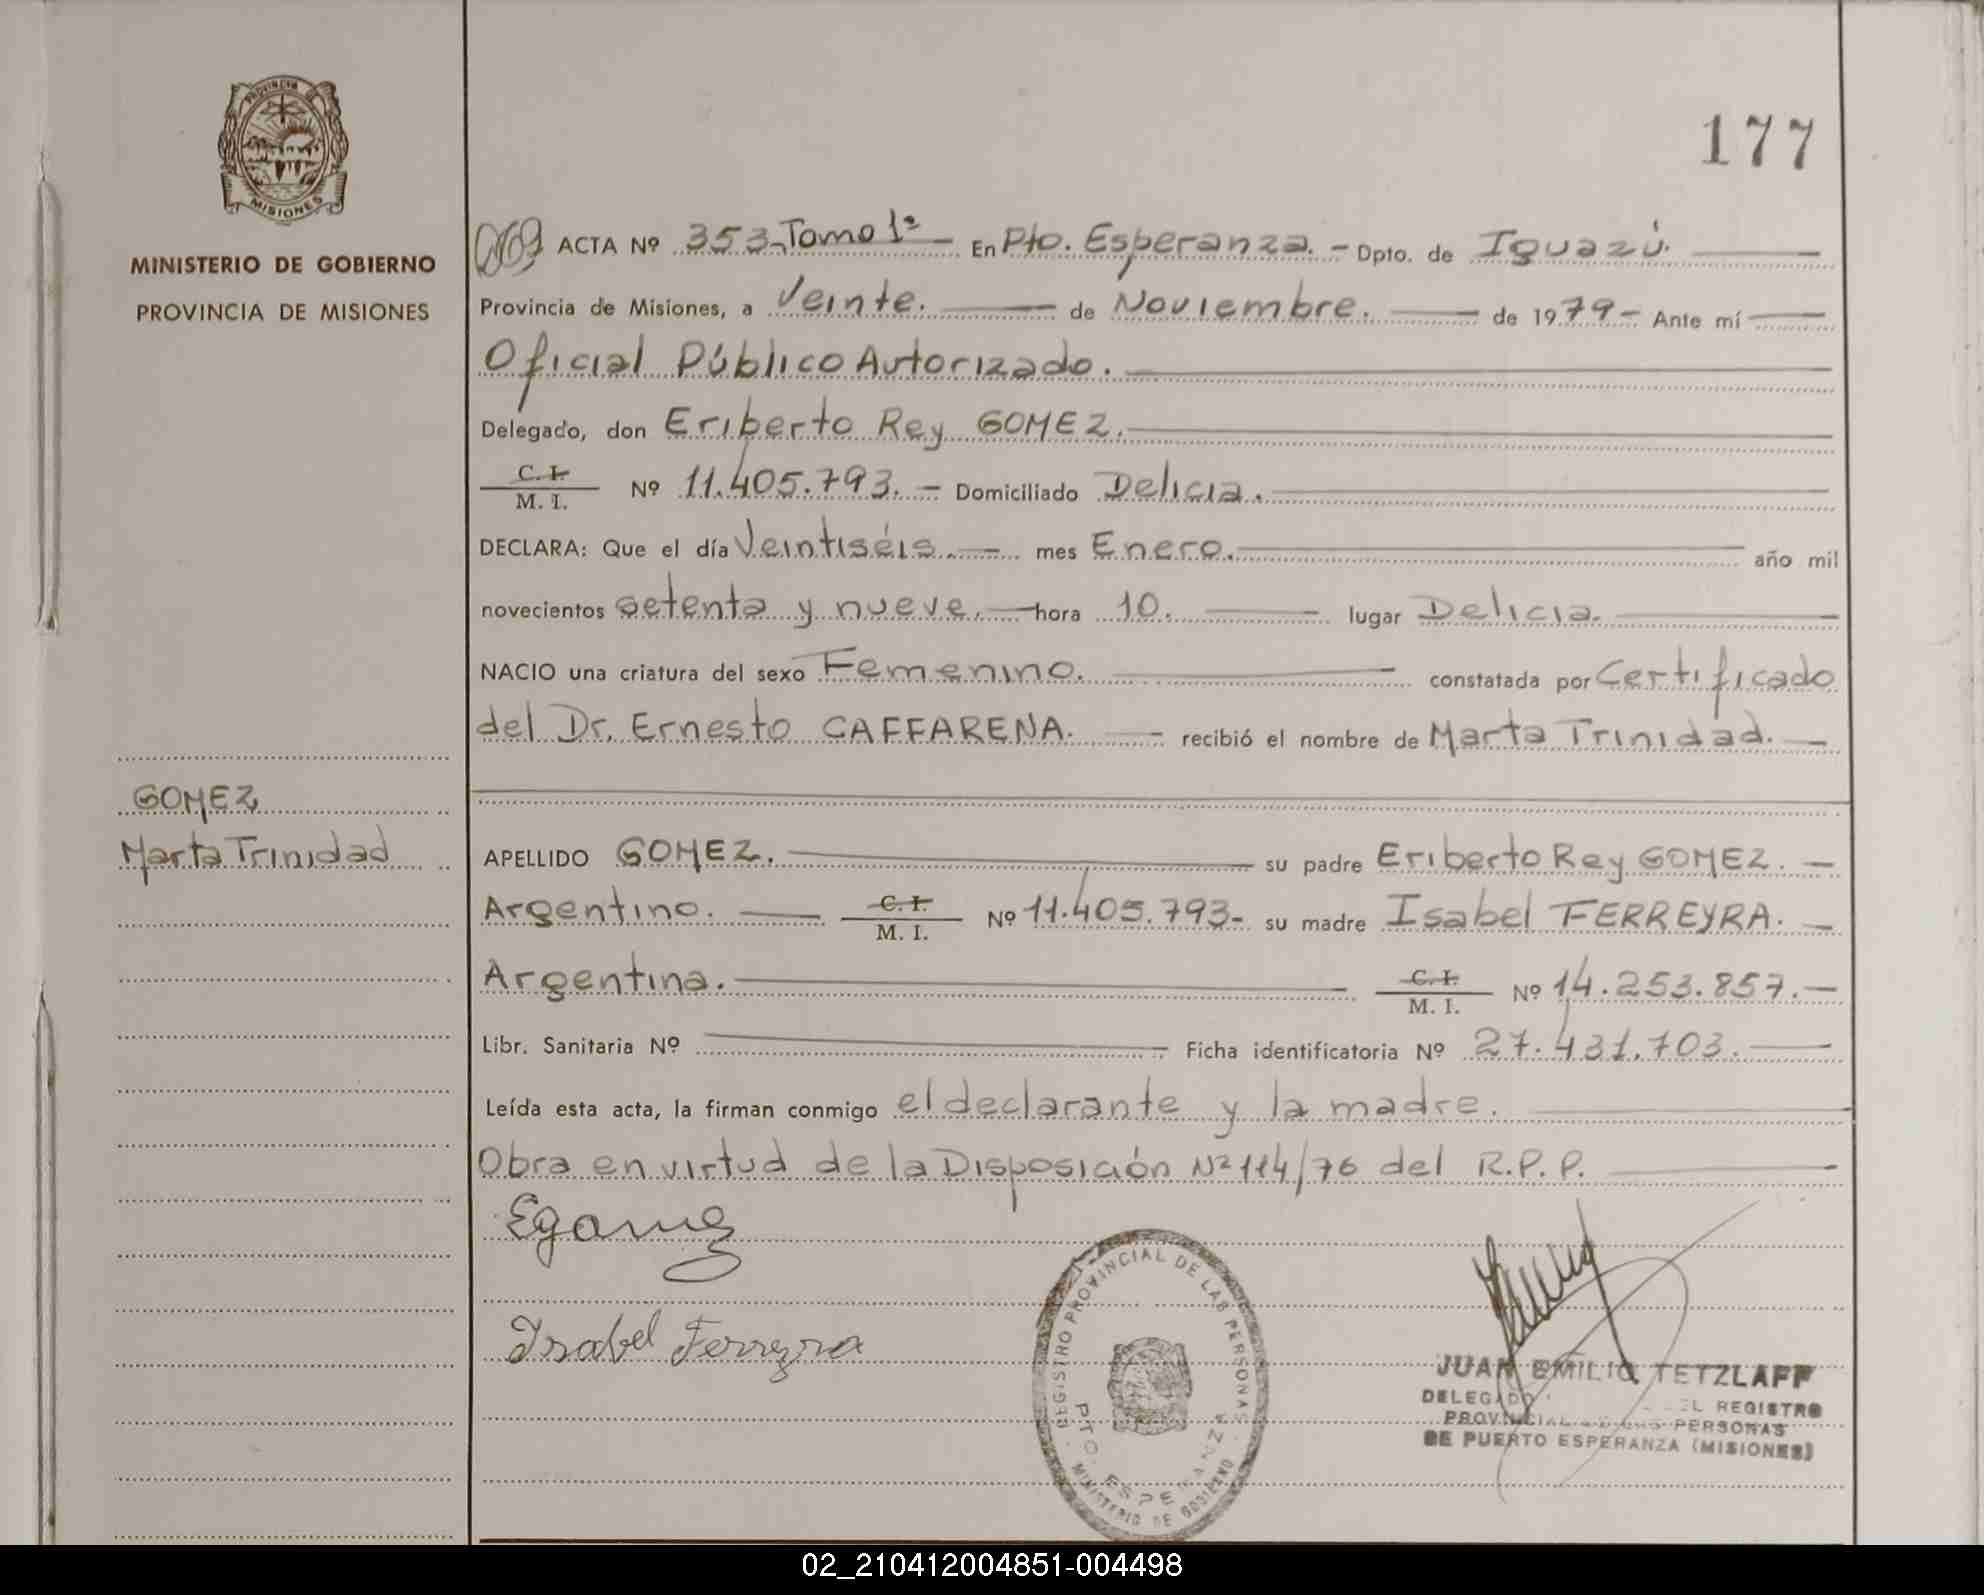 PROVINCIA DE
MISIONES
MINISTERIO DE GOBIERNO
PROVINCIA DE MISIONES
GOMEZ
Marta Trinidad
177
ACTA Nº 353-Tomo 1º - En Pto. Esperanza. - Dpto. de Iguazú.
Provincia de Misiones, a Veinte. de Noviembre. de 1979 - Ante mí
Oficial Público Autorizado.
Delegado, don Eriberto Rey GOMEZ.
C. I.
M. I. Nº 11.405.793. - Domiciliado Delicia.
DECLARA: Que el día Veintiséis. - mes Enero. año mil
novecientos setenta y nueve. - hora 10. lugar Delicia.
NACIO una criatura del sexo Femenino. constatada por Certificado
del Dr. Ernesto CAFFARENA. - recibió el nombre de Marta Trinidad. -
APELLIDO GOMEZ. su padre Eriberto Rey GOMEZ. -
Argentino. C. I. M. I. Nº 11.405.793- su madre Isabel FERREYRA. -
Argentina. C. I. M. I. Nº 14.253.857. -
Libr. Sanitaria Nº Ficha identificatoria Nº 27.431.703.
Leída esta acta, la firman conmigo el declarante y la madre.
Obra en virtud de la Disposición Nº 114/76 del R.P.P.
Isabel Ferreyra
REGISTRO PROVINCIAL DE LAS PERSONAS
PTO. ESPERANZA
MINISTERIO DE GOBIERNO
JUAN EMILIO TETZLAFF
DELEGADO EL REGISTRO
PROVINCIAL PERSONAS
DE PUERTO ESPERANZA (MISIONES)
02_210412004851-004498